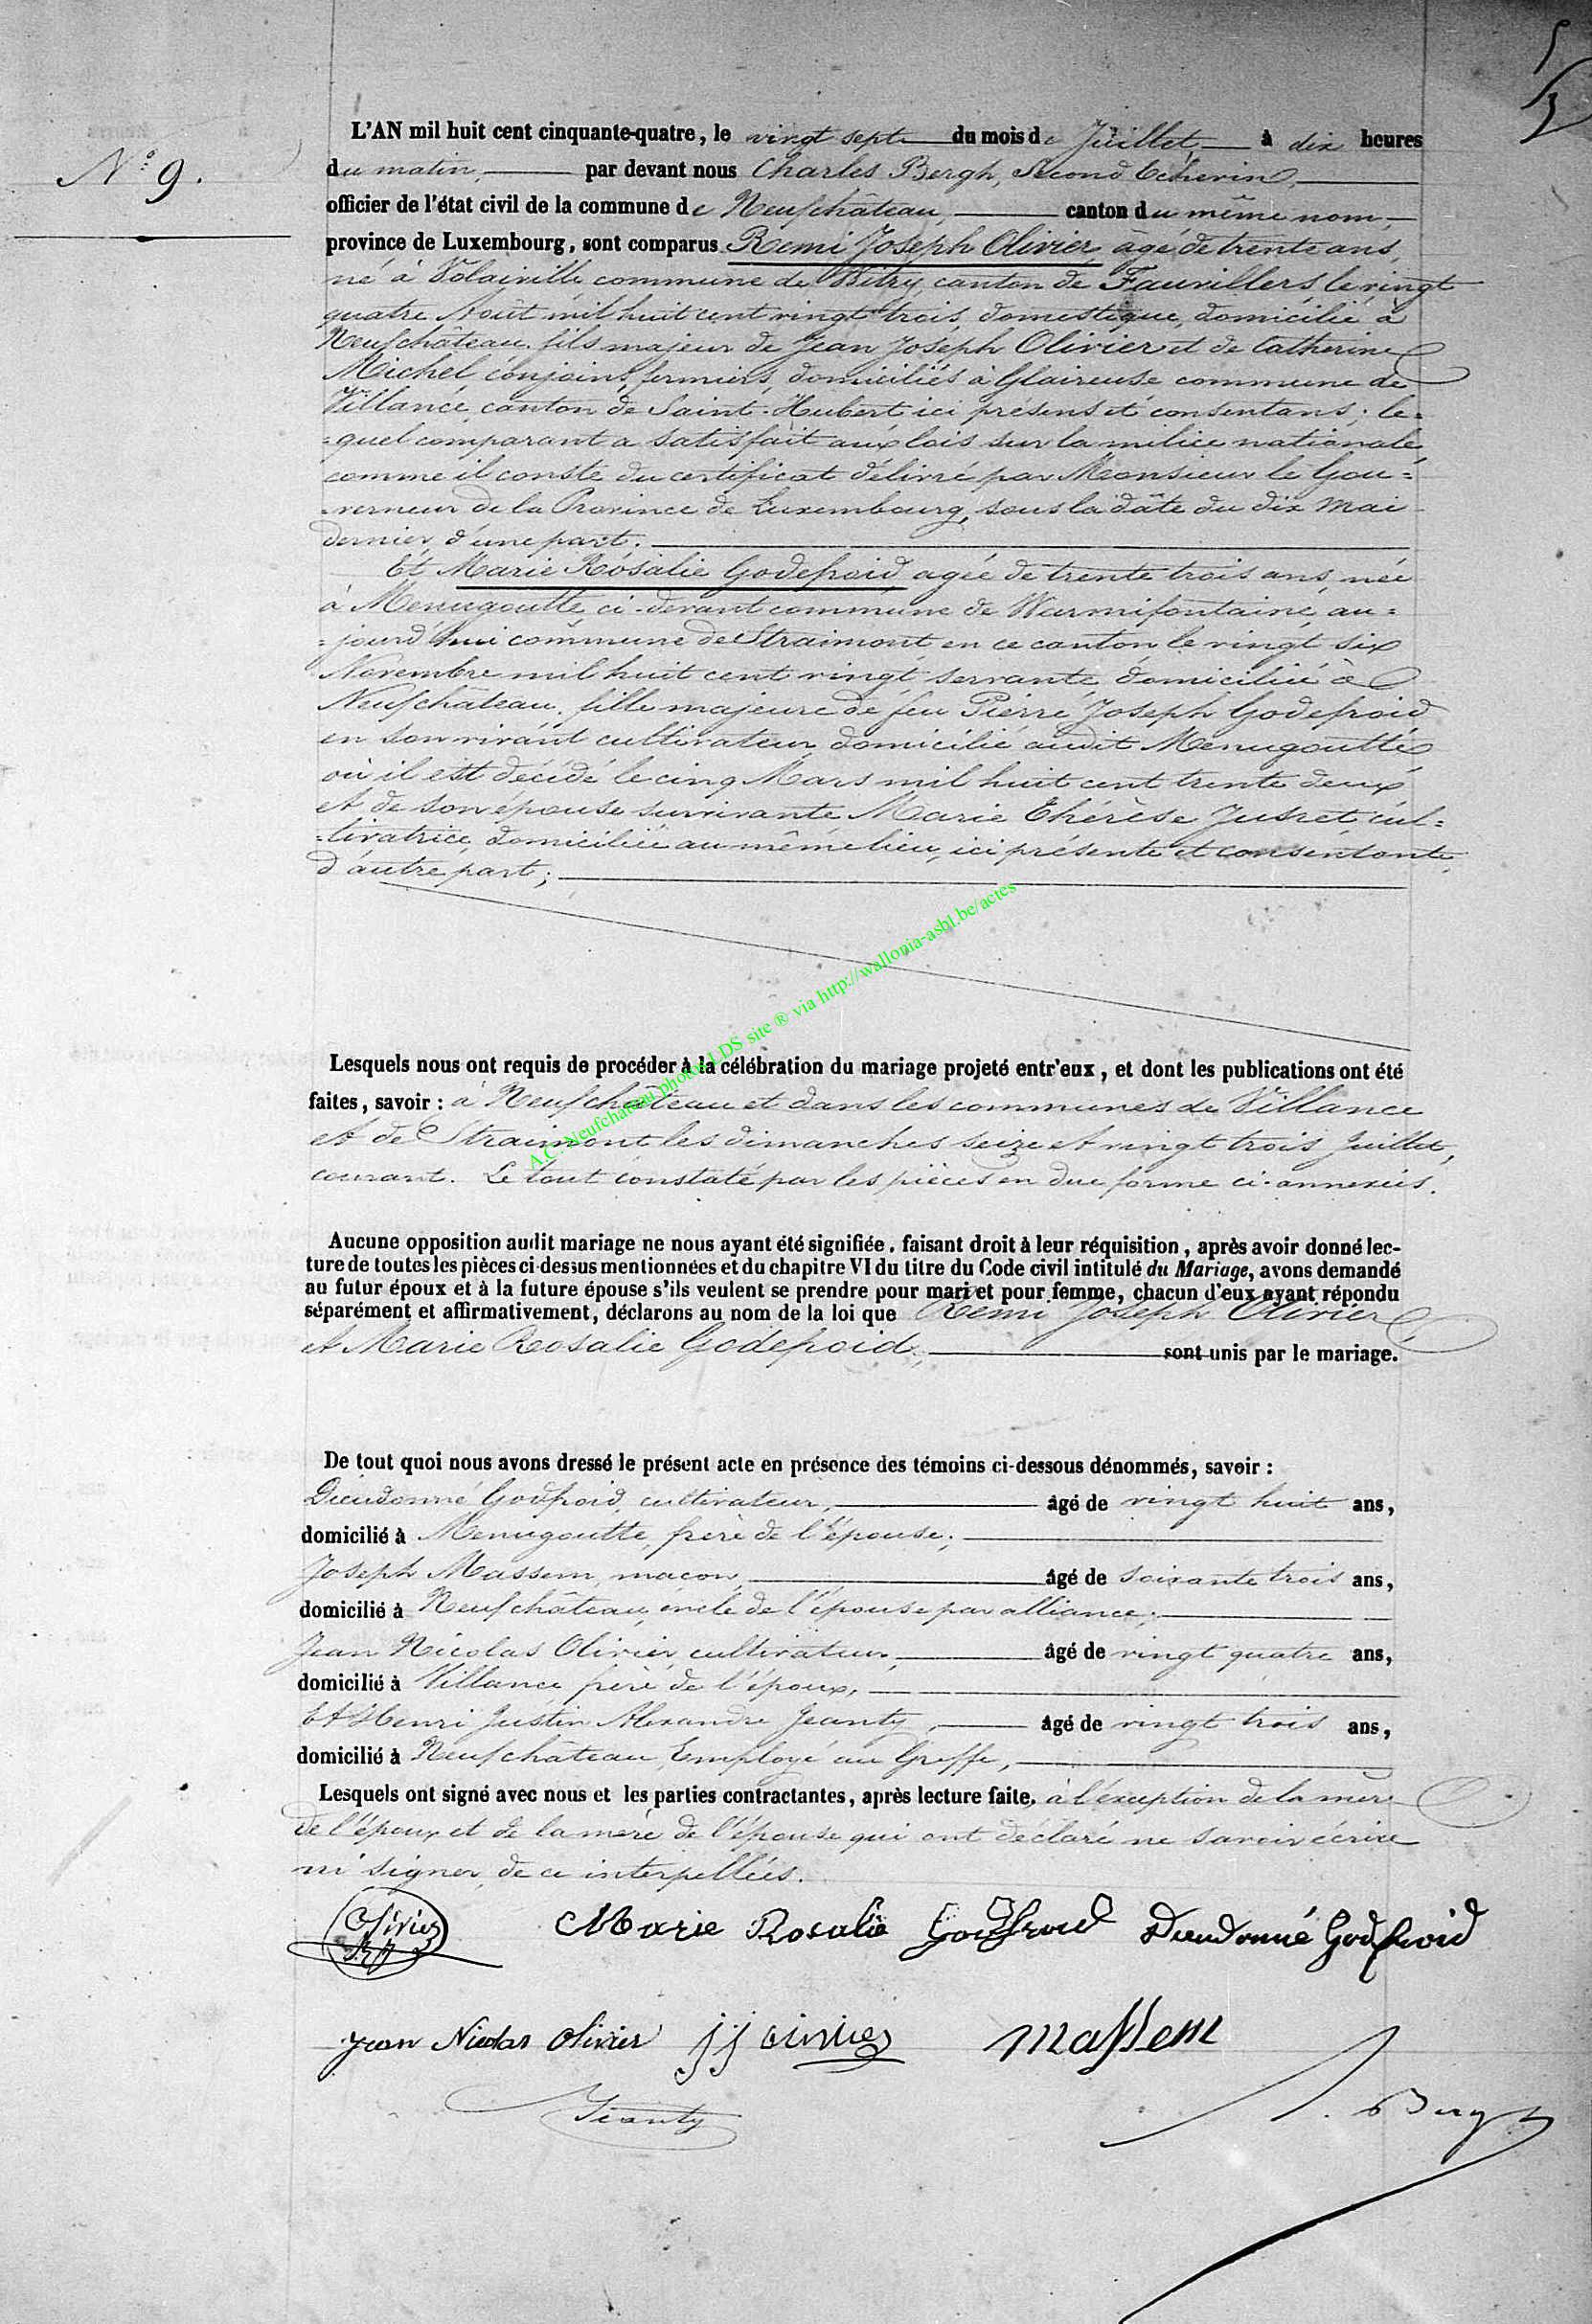 5/3
L'AN mil huit cent cinquante-quatre, le vingt sept du mois de Juillet, à dix heures
N.º 9.
du matin, par devant nous Charles Bergh, Second Echevin,
officier de l'état civil de la commune de Neufchâteau, canton du même nom,
province de Luxembourg, sont comparus Remi Joseph Olivier, âgé de trente ans,
né à Volaiville commune de Witry, canton de Fauvillers, le vingt
quatre Août mil huit cent vingt trois, domestique, domicilié à
Neufchâteau, fils majeur de Jean Joseph Olivier et de Catherine
Michel conjoins, fermiers, domiciliés à Glaireuse commune de
Villance, canton de Saint-Hubert ici présens et consentans; le=
=quel comparant a satisfait aux lois sur la milice nationale
comme il conste du certificat délivré par Monsieur le Gou=
=verneur de la Province de Luxembourg, sous la dâte du dix Mai
dernier, d'une part.
Et Marie Rosalie Godefroid, agée de trente trois ans, née
à Menugoutte, ci-devant commune de Warmifontaine, au=
=jourd'hui commune de Straimont, en ce canton, le vingt six
Novembre mil huit cent vingt, servante, domiciliée à
Neufchâteau, fille majeure de feu Pierre Joseph Godefroid
en son vivant cultivateur, domicilié audit Menugoutte
où il est décédé le cinq Mars mil huit cent trente deux
et de son épouse survivante Marie Thérèse Jusret, cul=
=tivatrice, domiciliée au même lieu, ici présente et consentante,
d'autre part;
Lesquels nous ont requis de procéder à la célébration du mariage projeté entr'eux, et dont les publications ont été
faites, savoir: à Neufchâteau et dans les communes de Villance
et de Straimont les dimanches seize et vingt trois Juillet,
courant. Le tout constaté par les pièces en due forme ci-annexées.
A.C. Neufchateau photos LDS site ® via http://wallonia-asbl.be/actes
Aucune opposition audit mariage ne nous ayant été signifiée, faisant droit à leur réquisition, après avoir donné lec-
ture de toutes les pièces ci-dessus mentionnées et du chapitre VI du titre du Code civil intitulé du Mariage, avons demandé
au futur époux et à la future épouse s'ils veulent se prendre pour mari et pour femme, chacun d'eux ayant répondu
séparément et affirmativement, déclarons au nom de la loi que Remi Joseph Olivier
et Marie Rosalie Godefroid, sont unis par le mariage.
De tout quoi nous avons dressé le présent acte en présence des témoins ci-dessous dénommés, savoir:
Dieudonné Godfroid, cultivateur, âgé de vingt huit ans,
domicilié à Menugoutte, frère de l'épouse;
Joseph Massem, maçon, âgé de soixante trois ans,
domicilié à Neufchâteau, oncle de l'épouse par alliance;
Jean Nicolas Olivier, cultivateur, âgé de vingt quatre ans,
domicilié à Villance frère de l'époux,
Et Henri Justin Alexandre Jeanty, âgé de vingt trois ans,
domicilié à Neufchâteau, Employé au Greffe,
Lesquels ont signé avec nous et les parties contractantes, après lecture faite, à l'exception de la mère
de l'époux et de la mère de l'épouse qui ont déclaré ne savoir écrire
ni signer, de ce interpellées.
Olivier RJ Marie Rosalie Godfroid Dieudonné Godfroid
Jean Nicolas Olivier JJ Olivier Massem
Jeanty C. Bergh